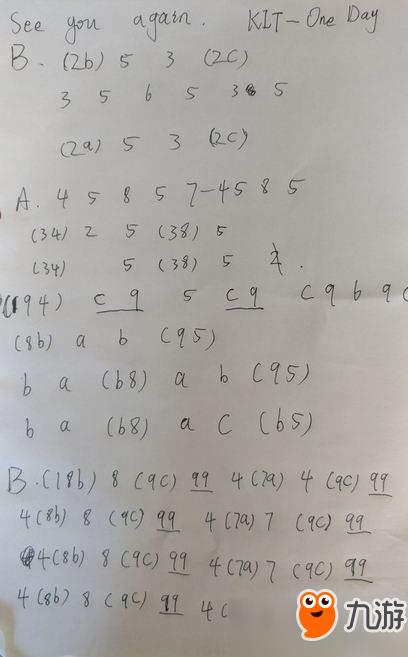 See you again. KIT-One Day
B. (2b) 5 3 (2C)
3 5 6 5 3 5
(2a) 5 3 (2C)
A. 4 5 8 5 7-45 8 5
(34) 2 5 (38) 5
(34) 5 (38) 5
(194) c9 5 c9 c9b9c
(8b) a b (95)
b a (b8) a b (95)
b a (b8) a C (b5)
B.(18b) 8 (9C) 99 4(7a) 4 (9C) 99
4(8b) 8 (9C) 99 4(7a) 7 (9C) 99
4(8b) 8 (9C) 99 4(7a) 7 (9C) 99
4(8b) 8 (9C) 99 4(
九游